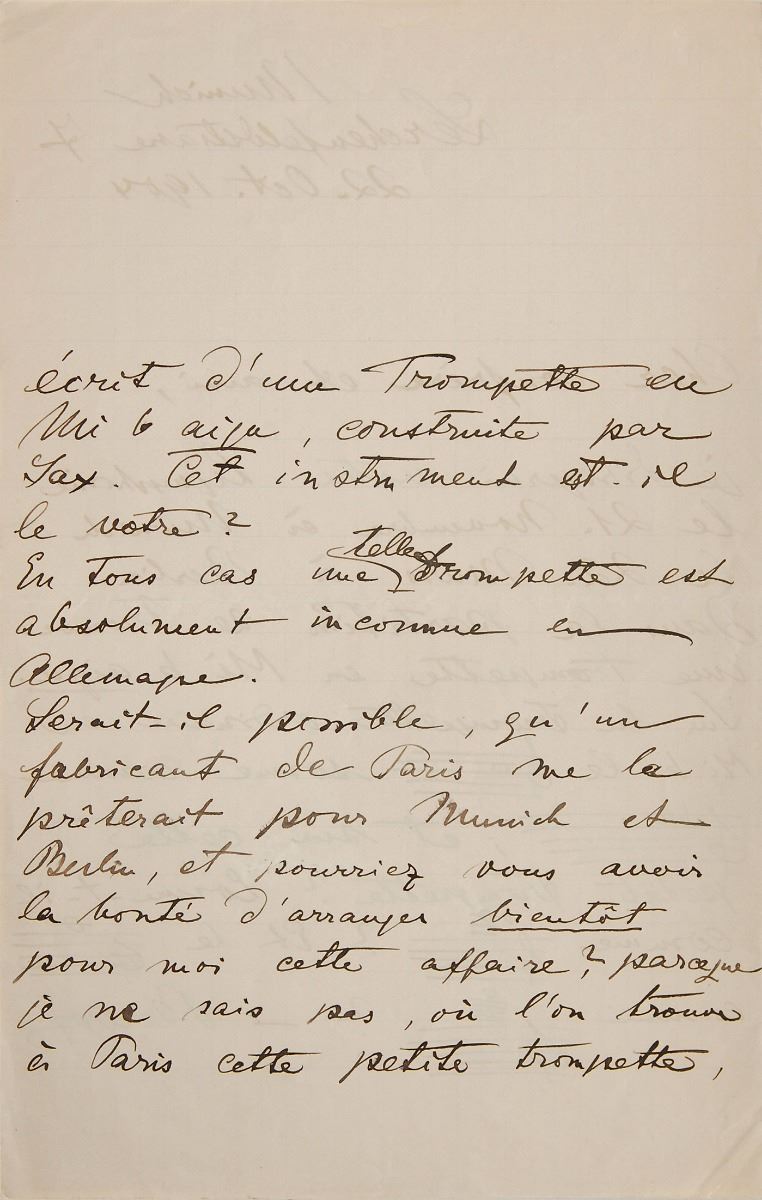 écrit d'une Trompette en
Mi b aigu, construite par
Sax. Cet instrument est-il
le vôtre?
En tous cas une telle Trompette est
absolument inconnue en
Allemagne.
Serait-il possible, qu'un
fabricant de Paris me la
prêterait pour Munich et
Berlin, et pourriez vous avoir
la bonté d'arranger bientôt
pour moi cette affaire? parceque
je ne sais pas, où l'on trouve
à Paris cette petite trompette,